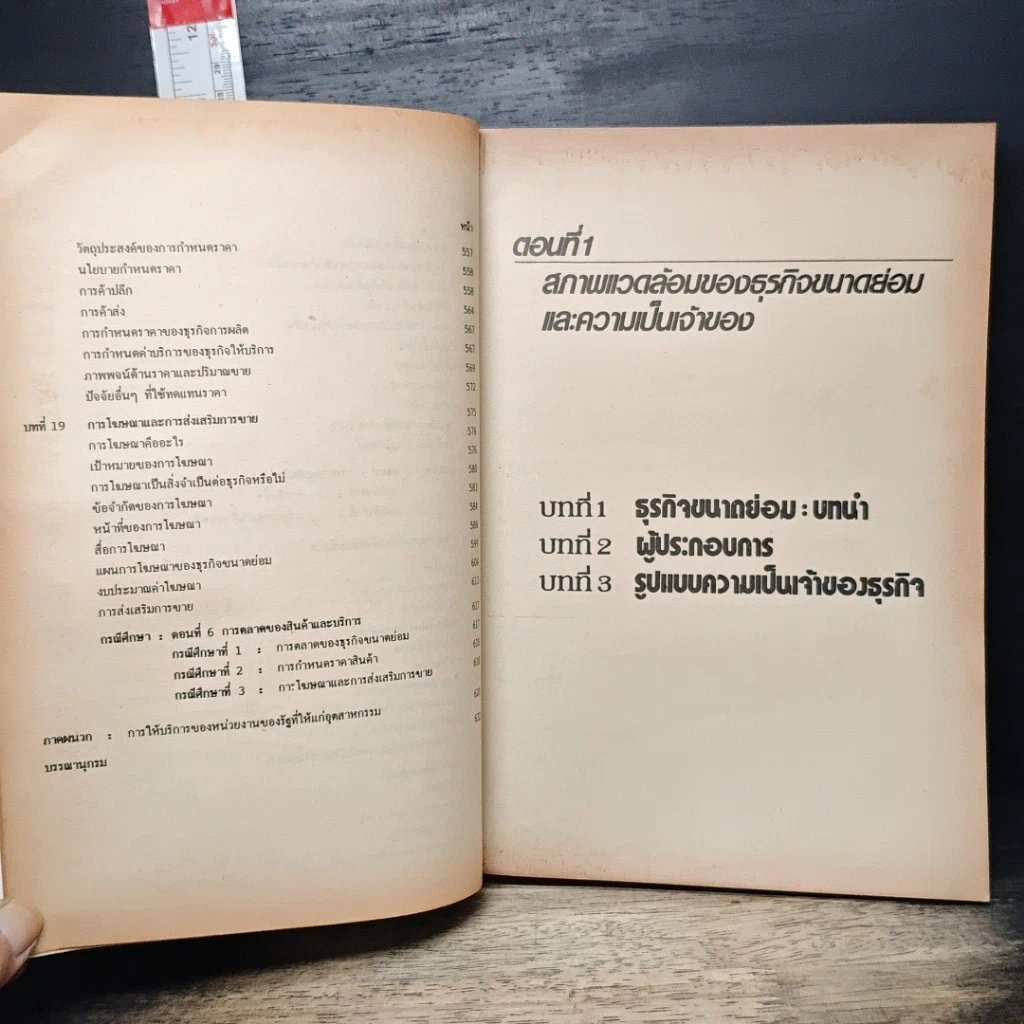 หน้า
วัตถุประสงค์ของการกำหนดราคา 557
นโยบายกำหนดราคา 558
การค้าปลีก 558
การค้าส่ง 564
การกำหนดราคาของธุรกิจการผลิต 567
การกำหนดค่าบริการของธุรกิจให้บริการ 567
ภาพพจน์ด้านราคาและปริมาณขาย 569
ปัจจัยอื่นๆ ที่ใช้ทดแทนราคา 572
บทที่ 19 การโฆษณาและการส่งเสริมการขาย 575
การโฆษณาคืออะไร 576
เป้าหมายของการโฆษณา 576
การโฆษณาเป็นสิ่งจำเป็นต่อธุรกิจหรือไม่ 580
ข้อจำกัดของการโฆษณา 583
หน้าที่ของการโฆษณา 584
สื่อการโฆษณา 586
แผนการโฆษณาของธุรกิจขนาดย่อม 599
งบประมาณค่าโฆษณา 604
การส่งเสริมการขาย 611
กรณีศึกษา : ตอนที่ 6 การตลาดของสินค้าและบริการ 617
กรณีศึกษาที่ 1 : การตลาดของธุรกิจขนาดย่อม 617
กรณีศึกษาที่ 2 : การกำหนดราคาสินค้า
กรณีศึกษาที่ 3 : การโฆษณาและการส่งเสริมการขาย
ภาคผนวก : การให้บริการของหน่วยงานของรัฐที่ให้แก่อุตสาหกรรม
บรรณานุกรม
ตอนที่ 1
สภาพแวดล้อมของธุรกิจขนาดย่อม
และความเป็นเจ้าของ
บทที่ 1 ธุรกิจขนาดย่อม : บทนำ
บทที่ 2 ผู้ประกอบการ
บทที่ 3 รูปแบบความเป็นเจ้าของธุรกิจ